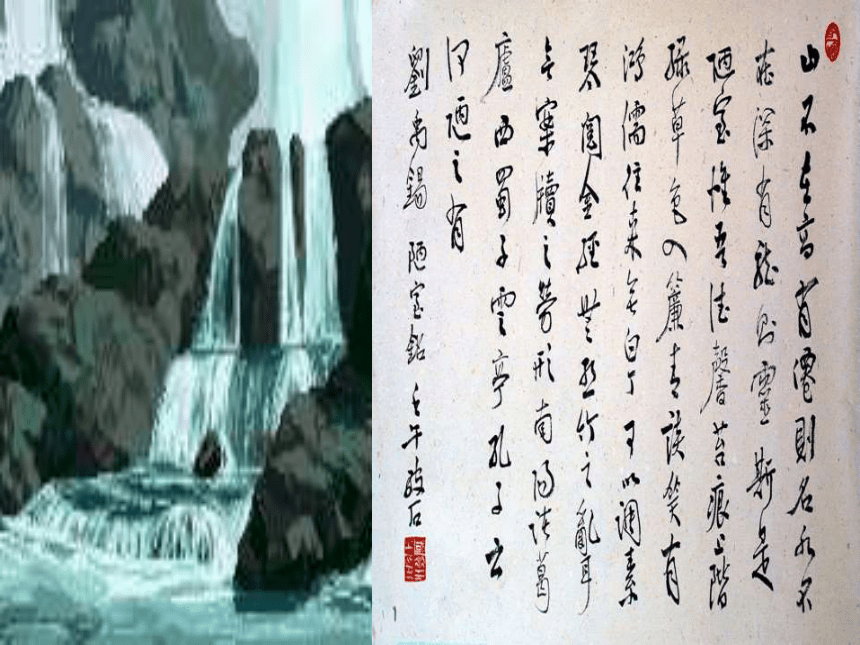 山不在高有僊則名水不
在深有龍則靈斯是
陋室惟吾德馨苔痕上階
綠草色入簾青談笑有
鴻儒往來無白丁可以調素
琴閱金經無絲竹之亂耳
無案牘之勞形南陽諸葛
廬西蜀子雲亭孔子云
何陋之有
劉禹錫 陋室銘 壬午